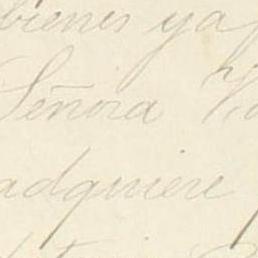 bienes ya
Señora
adquiere